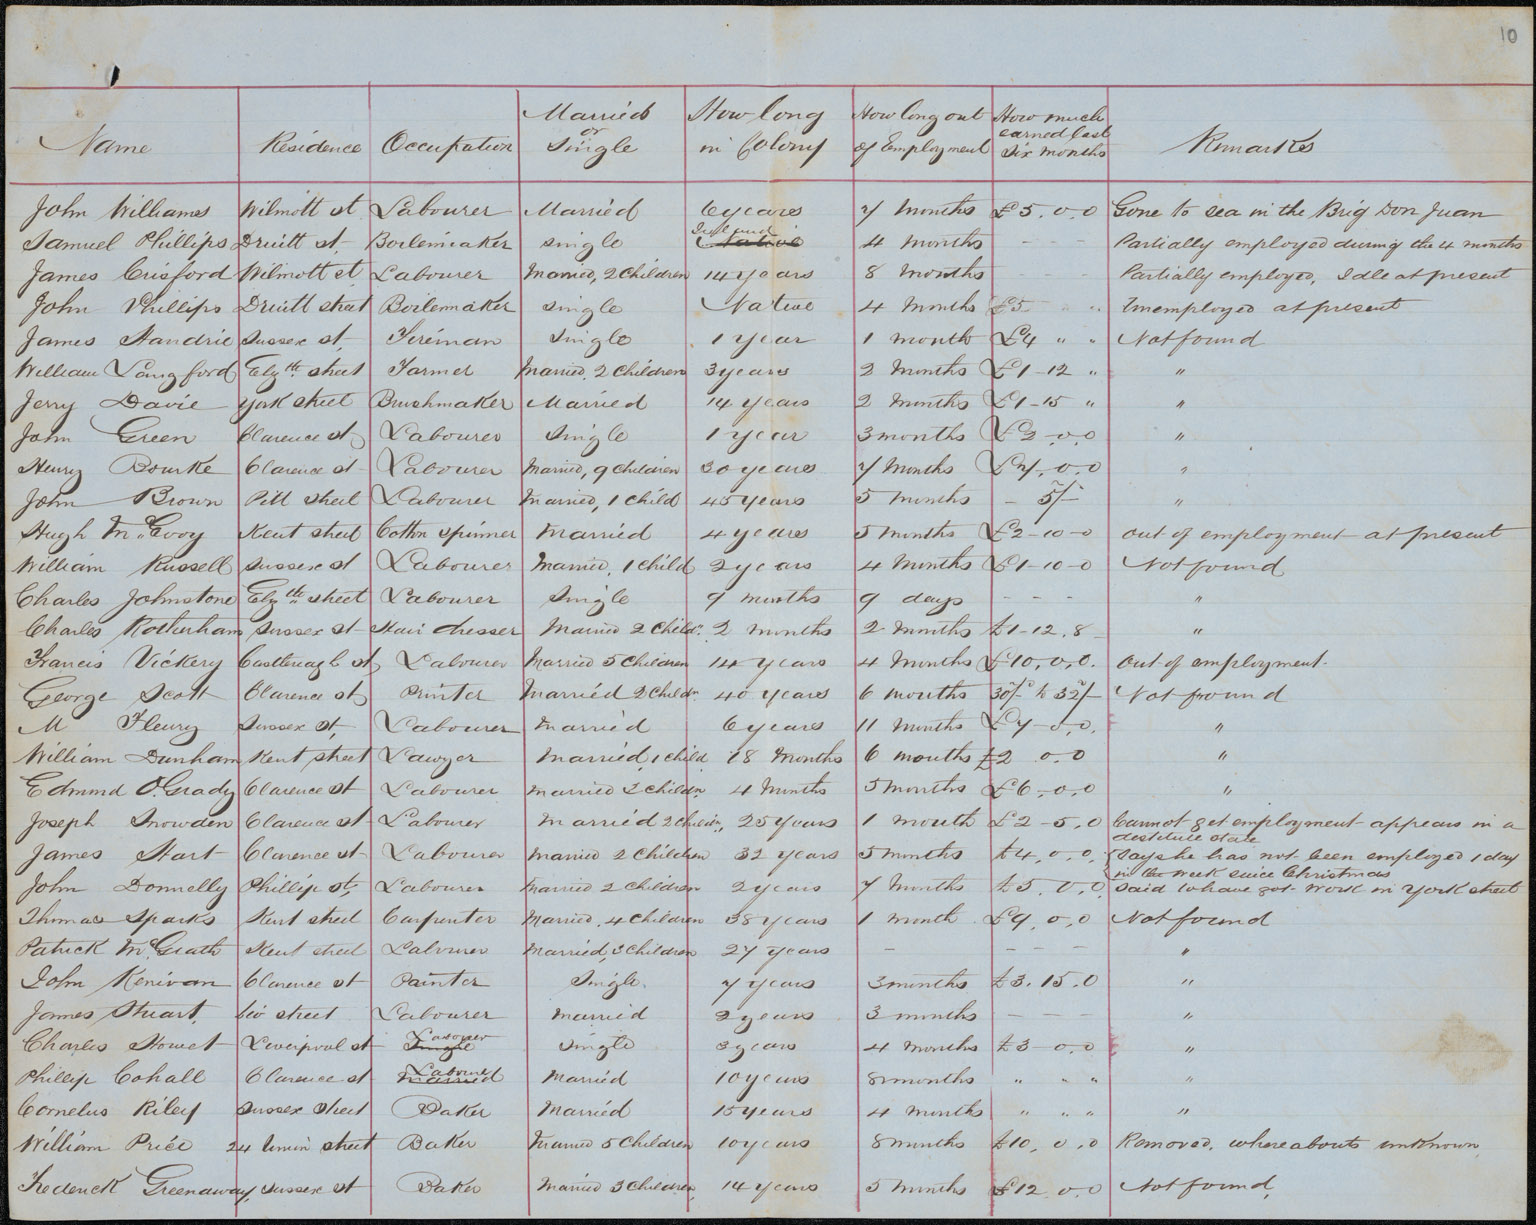 10
Name Residence Occupation Married or Single How long in Colony How long out of Employment How much earned last six months Remarks
John Williams Wilmott st Labourer Married 6 years 7 months £5.0.0 Gone to sea in the Brig Don Juan
Samuel Phillips Druitt st Boilermaker single Native 4 months - - - Partially employed during the 4 months
James Crisford Wilmott st Labourer Married, 2 Children 14 years 8 months - - - Partially employed, Idle at present
John Phillips Druitt street Boilermaker single Native 4 months £5 " " Unemployed at present
James Handrie Sussex st Fireman Single 1 year 1 month £4 " " Not found
William Langford Elzth street Farmer Married. 2 Children 3 years 2 months £1-12 " "
Jerry Davie York street Brushmaker Married 14 years 2 months £1-15 " "
John Green Clarence st Labourer Single 1 year 3 months £3-0.0 "
Henry Bourke Clarence st Labourer Married, 9 Children 30 years 7 months £7.0.0 "
John Brown Pitt street Labourer Married, 1 child 45 years 5 months - 5/- "
Hugh McEvoy Kent street Cotton spinner Married 4 years 5 months £2-10-0 out of employment at present
William Russell Sussex st Labourer Married, 1 child 2 years 4 months £1-10-0 Not found
Charles Johnstone Elzth street Labourer Single 9 months 9 days - - - "
Charles Rotherham Sussex st Hair dresser Married 2 Childn 2 months 2 months £1-12.8 "
Francis Vickery Castlereagh st Labourer Married 5 Children 14 years 4 months £10.0.0. out of employment
George Scott Clarence st Printer Married 2 Childn 40 years 6 months 30/- to 32/- Not found
M Fleury Sussex st, Labourer Married 6 years 11 months £7-0.0. "
William Dunham Kent street Lawyer Married, 1 child 18 Months 6 months £2 0.0 "
Edmund O'Grady Clarence st Labourer Married 2 Childn 4 Months 5 months £6-0.0 "
Joseph Snowden Clarence st Labourer Married 2 Childn, 25 years 1 month £2-5.0 Cannot get employment appears in a
destitute state
James Hart Clarence st Labourer Married 2 Children 32 years 5 months £4,0,0, Says he has not been employed 1 day
in the week since Christmas
John Donnelly Phillip st, Labourer Married 2 Children 2 years 7 months £5.0,0 Said to have got work in York street
Thomas Sparks Kent street Carpenter Married, 4 Children 38 years 1 month £9,0,0 Not found
Patrick McGrath Kent street Labourer Married, 3 Children 27 years - - - - "
John Kenivan Clarence st Painter Single. 7 years 3 months £3.15.0 "
James Stuart, street Labourer Married 2 years 3 months - - - "
Charles Howet Liverpool st Labourer Single Single 3 years 4 months £3-0.0 "
Phillip Cohall Clarence st Labourer Married Married 10 years 8 months " " " "
Cornelus Riley Sussex street Baker Married 15 years 4 months " " " "
William Price 24 Union street Baker Married 5 Children 10 years 8 months £10,0,0 Removed. whereabouts unknown
Frederick Greenaway, Sussex st Baker Married 3 Children, 14 years 5 months £12 0.0 Not found,